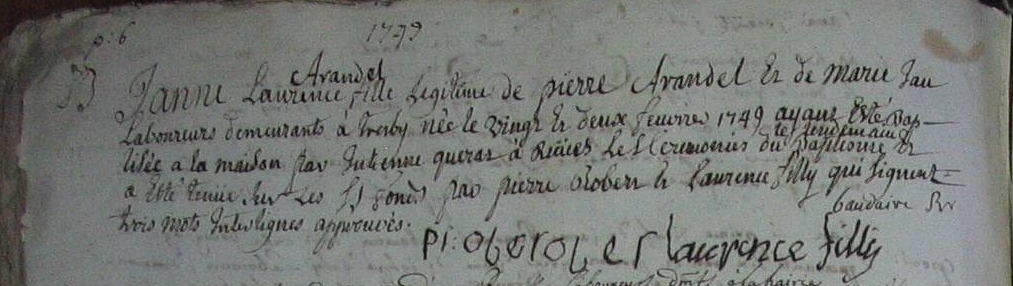 p: 6 1749
B Janne Laurence Arandel fille Legitime de pierre Arandel Et de Marie Jan
Laboureurs demeurants à née le vingt Et deux feuvrier 1749 ayant Esté Bap-
tisée a la maison par Julienne queras à Recües le lendemain Les Ceremonies du Baptisme Et
a Esté tenüe sur Les fonds par pierre Robert Et Laurence filly qui signent=
trois mots Interlignes approuvés. Rr
pi: laurence filly